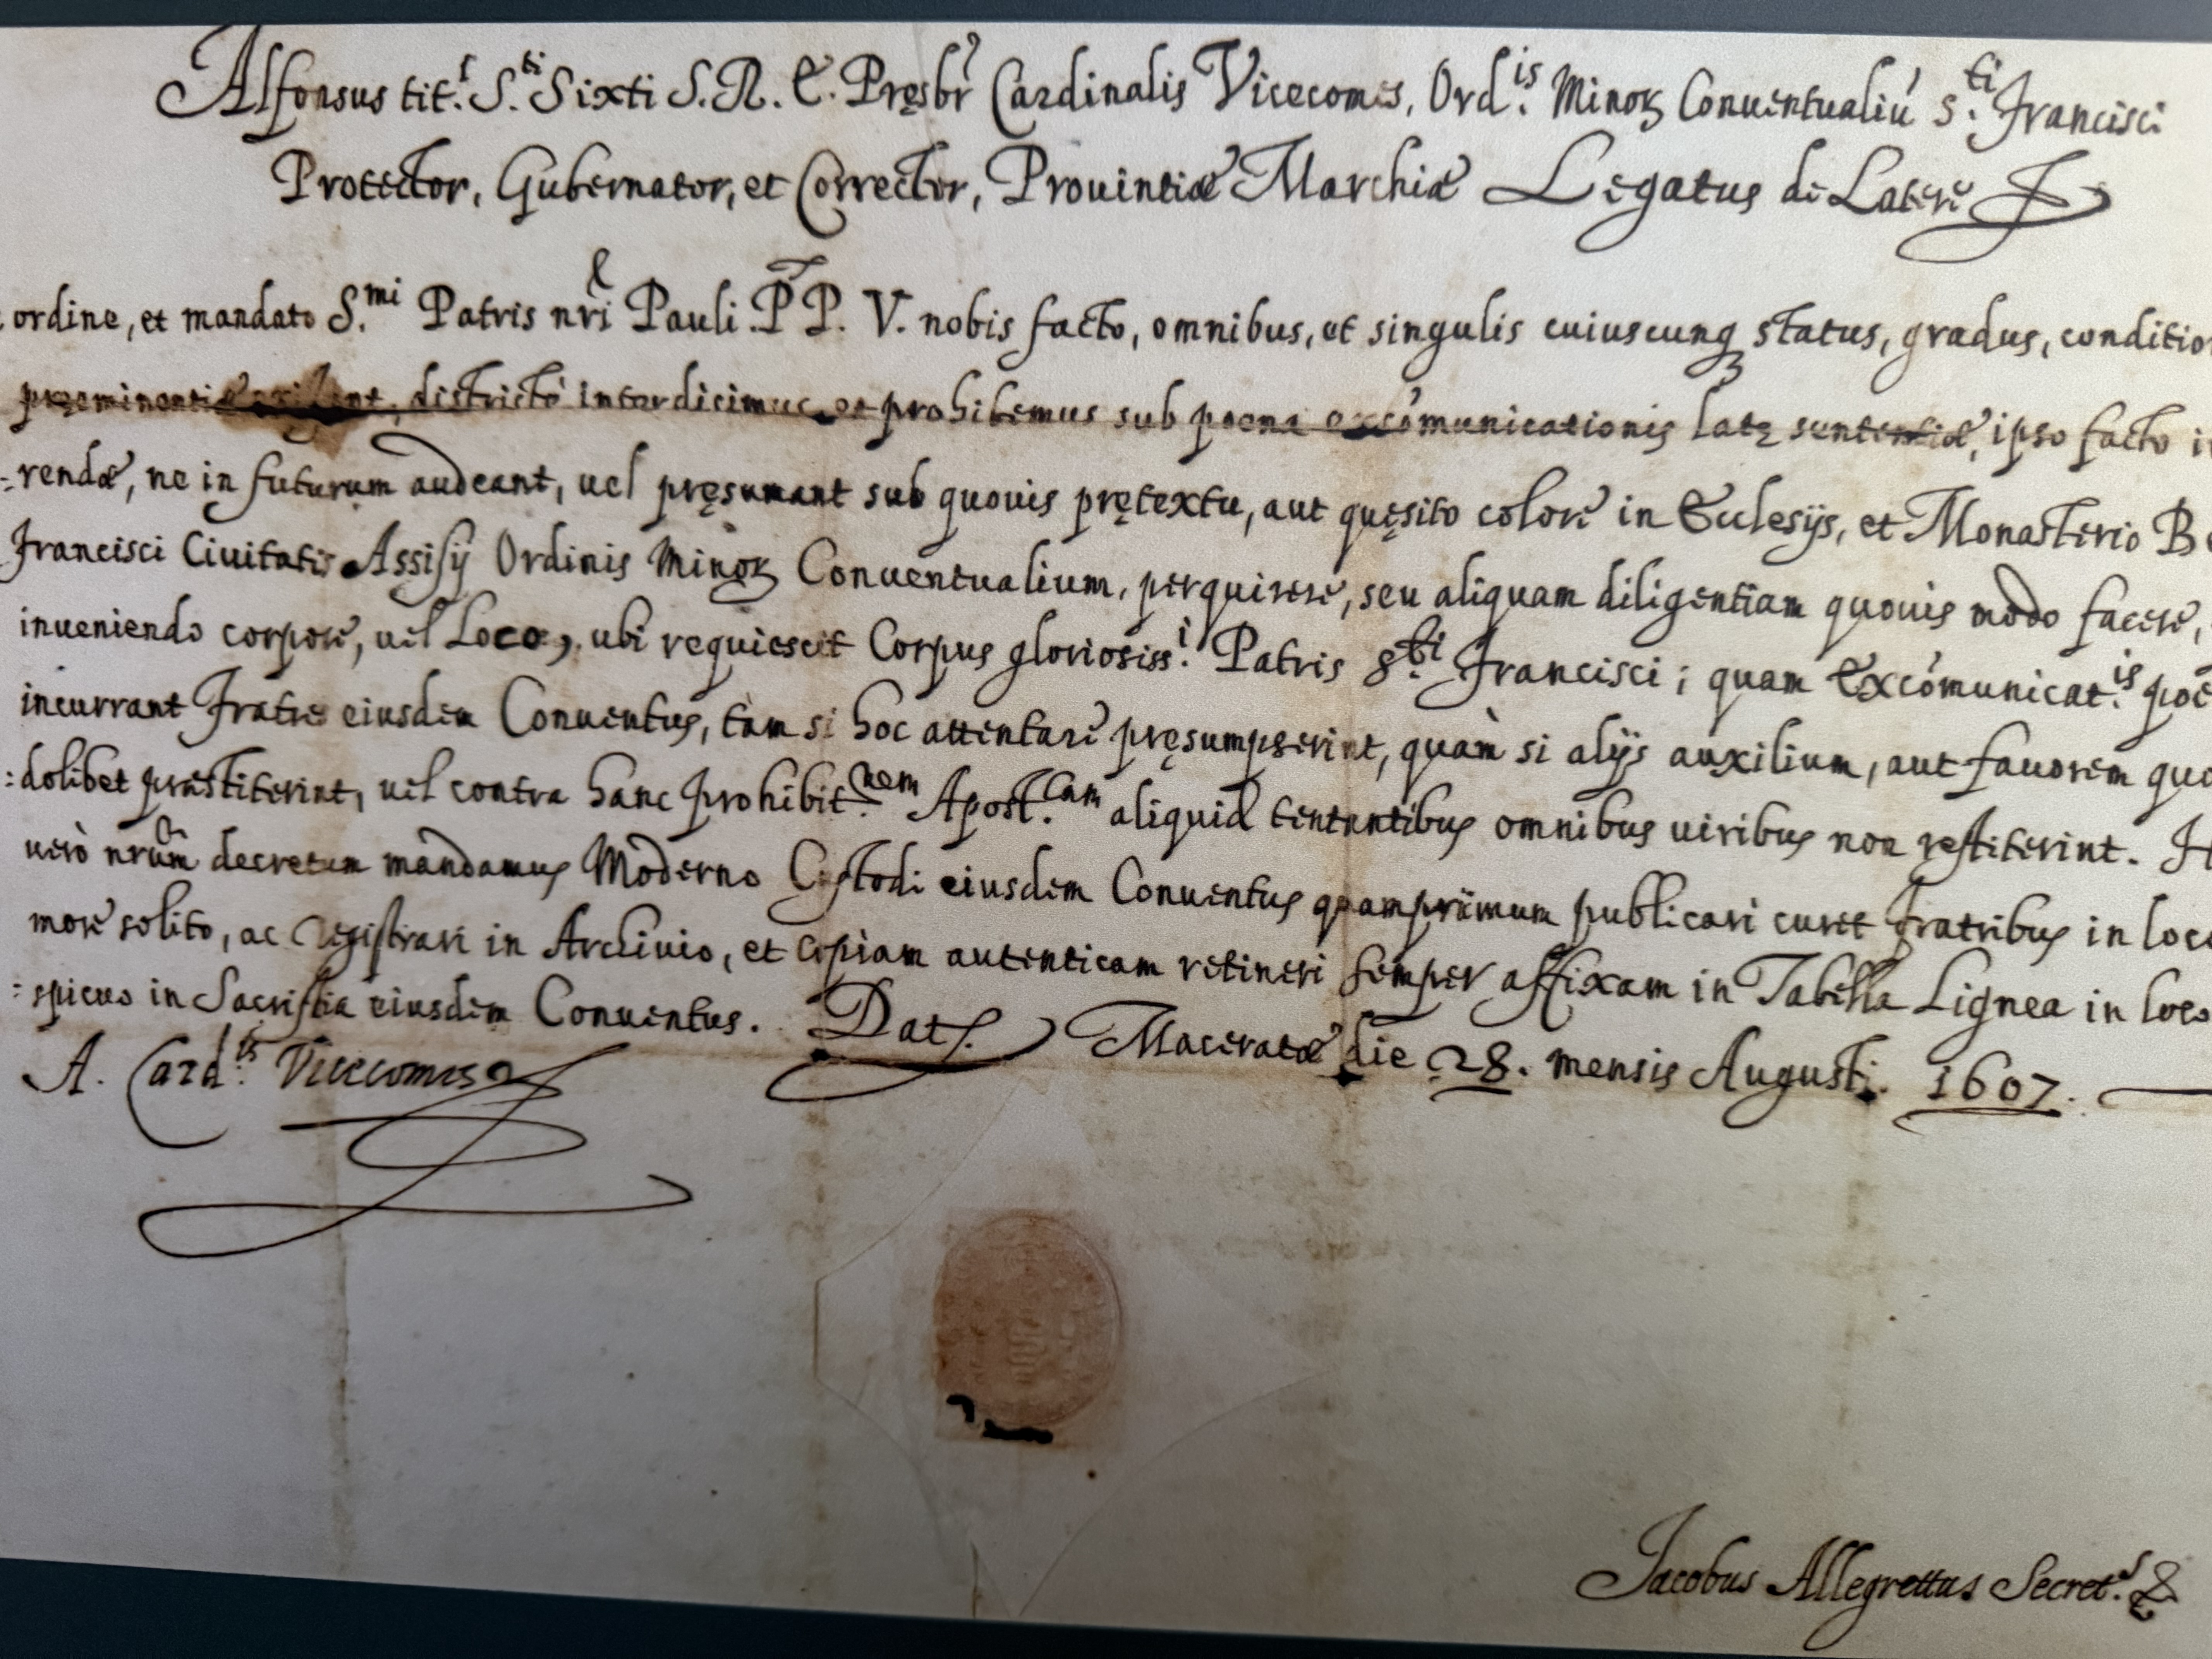 Alfonsus tit.ͬ S.ti Sixti S. R. E. Pręsbr Cardinalis Vicecomes, Ord.is Minoꝝ Conuentualiú S.ti Francisci
Protector, Gubernator, et Corrector, Prouintiæ Marchiæ Legatus de Latere
ordine, et mandato S.mi Patris nri Pauli PP. V. nobis facto, omnibus, et singulis cuiuscunq status, gradus, conditio
pręeminentiæ existant, districtè interdicimus, et prohibemus sub poena excómunicationis latę sententiæ, ipso facto
-rendæ, ne in futurum audeant, uel pręsumant sub quouis prętextu, aut quęsito colore in Ecclesijs, et Monasterio
Francisci Ciuitatis Assisij Ordinis Minoꝝ Conuentualium, perquirere, seu aliquam diligentiam quouis modo facere,
inueniendo corpore, uel Loco, ubi requiescit Corpus gloriosiss.i Patris S.ti Francisci; quam Excómunicat.is
incurrant Fratres eiusdem Conuentus, tam si hoc attentare pręsumpserint, quàm si alijs auxilium, aut fauorem quo
:dolibet præstiterint, uel contra hanc prohibit.nem Apost.cam aliquid tentantibus omnibus uiribus non restiterint.
uerò nrũm decretum mandamus Moderno Custodi eiusdem Conuentus quamprimum publicari curet fratribus in loco
more solito, ac registrari in Archiuio, et copiam autenticam retineri semper affixam in Tabella Lignea in loco
:spicuo in Sacristia eiusdem Conuentus. Dat. Maceratæ die 28. mensis Augusti. 1607.
A. Card.lis Vicecomes
Jacobus Allegrettus Secret.s